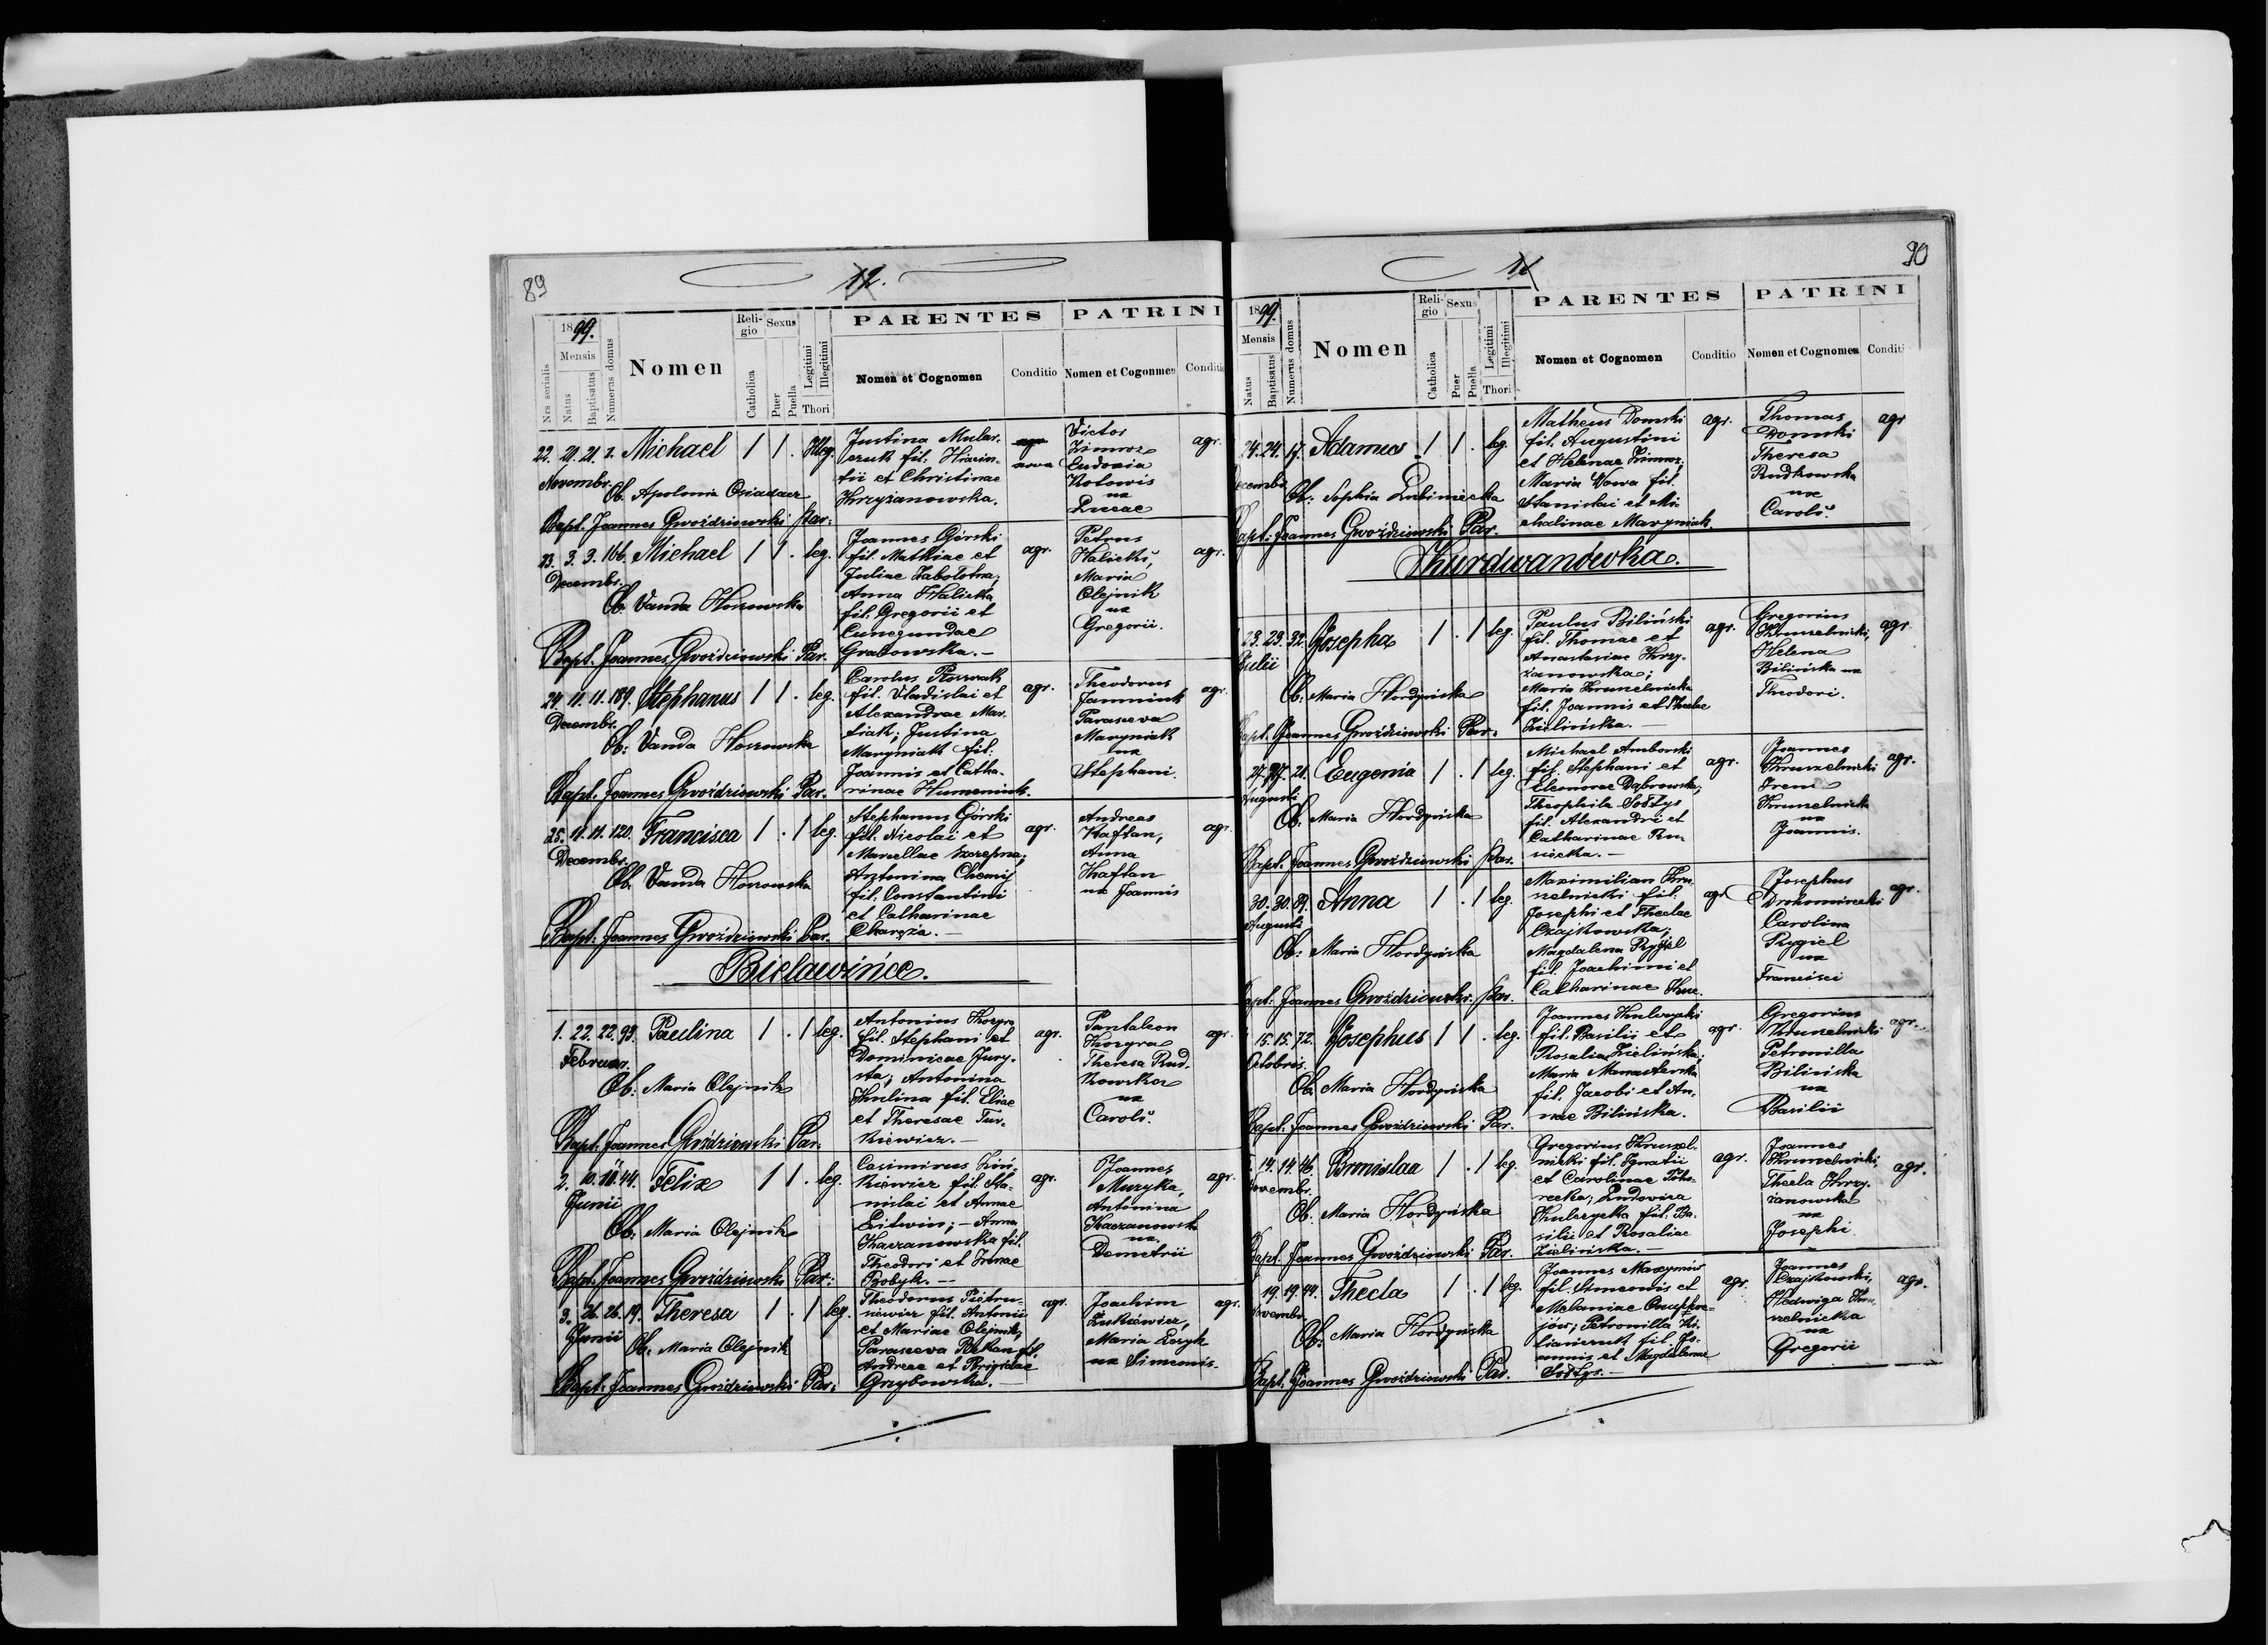 89
12.
1899.
Mensis
Nrs serialis
Natus
Baptisatus
Numerus domus
Nomen
Reli-
gio
Catholica
Sexus
Puer
Puella
Legitimi
Illegitimi
Thori
PARENTES
Nomen et Cognomen
Conditio
PATRINI
Nomen et Cogonmen
Conditio
22. 21. 21. 1. Michael 1 1 . Illeg.
Novembr.
Ob. Apolonia Osiadacz
Bapt. Joannes Gwoździowski Par:
Justina Mular-
czuk fil: Hiacin-
tii et Christinae
Krzyżanowska.
Victor
Zimroz
Eudoxia
Kotowis
ux
Lucae
agr.
23. 3. 3. 166. Michael 1 1 . leg.
Decembr.
Ob. Vanda Hoszowska
Bapt. Joannes Gwoździowski Par.
Joannes Górski
fil. Mathiae et
Juliae Zabolotna;
Anna Halicka
fil. Gregorii et
Cunegundae
Grabowska.—
agr.
Petrus
Halicki,
Maria
Olejnik
ux
Gregorii.
agr.
24. 11. 11. 189. Stephanus 1 1 . leg.
Decembr.
Ob: Vanda Hoszowska
Bapt. Joannes Gwoździowski Par.
Carolus
fil. Vladislai et
Alexandrae Mar-
tiak; Justina
Maryniak fil:
Joannis et Catha-
rinae Humeniuk.
agr.
Theodorus
Paraseva
Maryniak
ux
Stephani.
agr.
25. 11. 11. 120. Francisca 1 . 1 leg.
Decembr.
Ob. Vanda Hoszowska
Bapt: Joannes Gwoździowski Par.
Stephanus Górski
fil. Nicolai et
Marcellae Szczepna;
Antonina Chemij
fil. Constantini
et Catharinae
Charęża.—
agr.
Andreas
Kaftan,
Anna
Kaftan
ux Joannis
agr.
Bielawińce.
1. 22. 22. 93. Paulina 1 . 1 leg.
Februar.
Ob: Maria Olejnik
Bapt. Joannes Gwoździowski Par.
Antonius Kozyra
fil. Stephani et
Dominicae Jury-
sta; Antonina
Kulina fil. Eliae
et Theresae Tur-
kiewicz.—
agr.
Pantaleon
Kozyra
Theresa Rud-
kowska
ux
Caroli.
agr.
2. 10. 11. 44. Felix 1 1 . leg.
Junii
Ob: Maria Olejnik
Bapt. Joannes Gwoździowski Par:
Casimirus Zin-
kiewicz fil. Sta-
nislai et Annae
Litwin;— Anna
Kaczanowska fil.
Theodori et Irenae
Bobyk.—
agr.
Joannes
Muzyka,
Antonina
Kaczanowska
ux.
Demetrii
agr.
3. 26. 26. 19. Theresa 1 . 1 leg.
Junii
Ob: Maria Olejnik
Bapt: Joannes Gwoździowski Par:
Theodorus Pietru-
siewicz fil. Antonii
et Mariae Olejnik,
Paraseva fil.
Andreae et Brigidae
Grzybowska.—
agr.
Joachim
Zukiewicz,
Maria
ux Simeonis.
agr.
90
1899.
Mensis
Natus
Baptisatus
Numerus domus
Nomen
Reli-
gio
Catholica
Sexus
Puer
Puella
Legitimi
Illegitimi
Thori
PARENTES
Nomen et Cognomen
Conditio
PATRINI
Nomen et Cognomen
Conditi
24. 24. 17. Adamus 1 1 . leg.
Ob: Sophia Lubiniecka
Bapt: Joannes Gwoździowski Par.
Matheus Domski
fil. Augustini
et Helenae Zimroz;
Maria Wowa fil.
Stanislai et Mi-
chalinae Maryniak
agr.
Thomas
Domski
Theresa
Rudkowska
ux
Caroli.
agr
Kurdwanówka.
23. 23. 32. Josepha 1 . 1 leg.
Julii
Ob: Maria Hordyńska
Bapt. Joannes Gwoździowski Par.
Paulus Biliński
fil. Thomae et
Anastasiae Krzy-
żanowska;
Maria Kruszelnicka
fil. Joannis et Theclae
Zielińska.—
agr.
Gregorius
Kruszelnicki,
Helena
Bilińska ux
Theodori.
agr.
27. 27. 21. Eugenia 1 . 1 leg.
Augusti
Ob: Maria Hordyńska
Bapt. Joannes Gwoździowski Par.
Michael Amborski
fil. Stephani et
Eleonorae Dąbrowska;
Theophila Sołtys
fil. Alexandri et
Catharinae Ru-
siecka.—
agr.
Joannes
Kruszelnicki
Irene
Kruszelnicka
ux
Joannis.
agr.
30. 30. 89. Anna 1 . 1 leg.
Augusti
Ob: Maria Hordyńska
Bapt: Joannes Gwoździowski. Par.
Maximilian Kru-
szelnicki fil.
Josephi et Theclae
Czajkowska;
Magdalena Rygiel
fil. Joachimi et
Catharinae Kuc.
agr
Josephus
Drohomirecki
Carolina
Rygiel
ux
Francisci
agr.
15. 15. 72. Josephus 1 1 . leg.
Octobris.
Ob. Maria Hordyńska
Bapt. Joannes Gwoździowski Par.
Joannes Kulczycki
fil. Basilii et
Rosalia Zielińska;
Maria Manasterska
fil. Jacobi et An-
nae Bilińska.
agr.
Gregorius
Kruszelnicki
Petronilla
Bilińska
ux
Basilii
agr.
14. 14. 46. Bronislaa 1 . 1 leg.
Novembr.
Ob. Maria Hordyńska
Bapt. Joannes Gwoździowski Par.
Gregorius Kruszel-
nicki fil. Ignatii
et Carolinae
Ludovica
Kulczycka fil. Ba-
silii et Rosaliae
Zielińska.—
agr.
Joannes
Kruszelnicki,
Thecla Krzy-
żanowska
ux
Josephi.
agr.
19. 19. 44. Thecla 1 . 1 leg.
Novembr.
Ob: Maria Hordyńska
Bapt. Joannes Gwoździowski Par.
Joannes Maxymów
fil. Simeonis et
Melaniae Onuphre-
jów; Petronilla Ki-
lianczuk fil. Jo-
annis et Magdalenae
Sołtys.—
agr.
Joannes
Czajkowski,
Hedwiga Kru-
szelnicka
ux
Gregorii
agr.